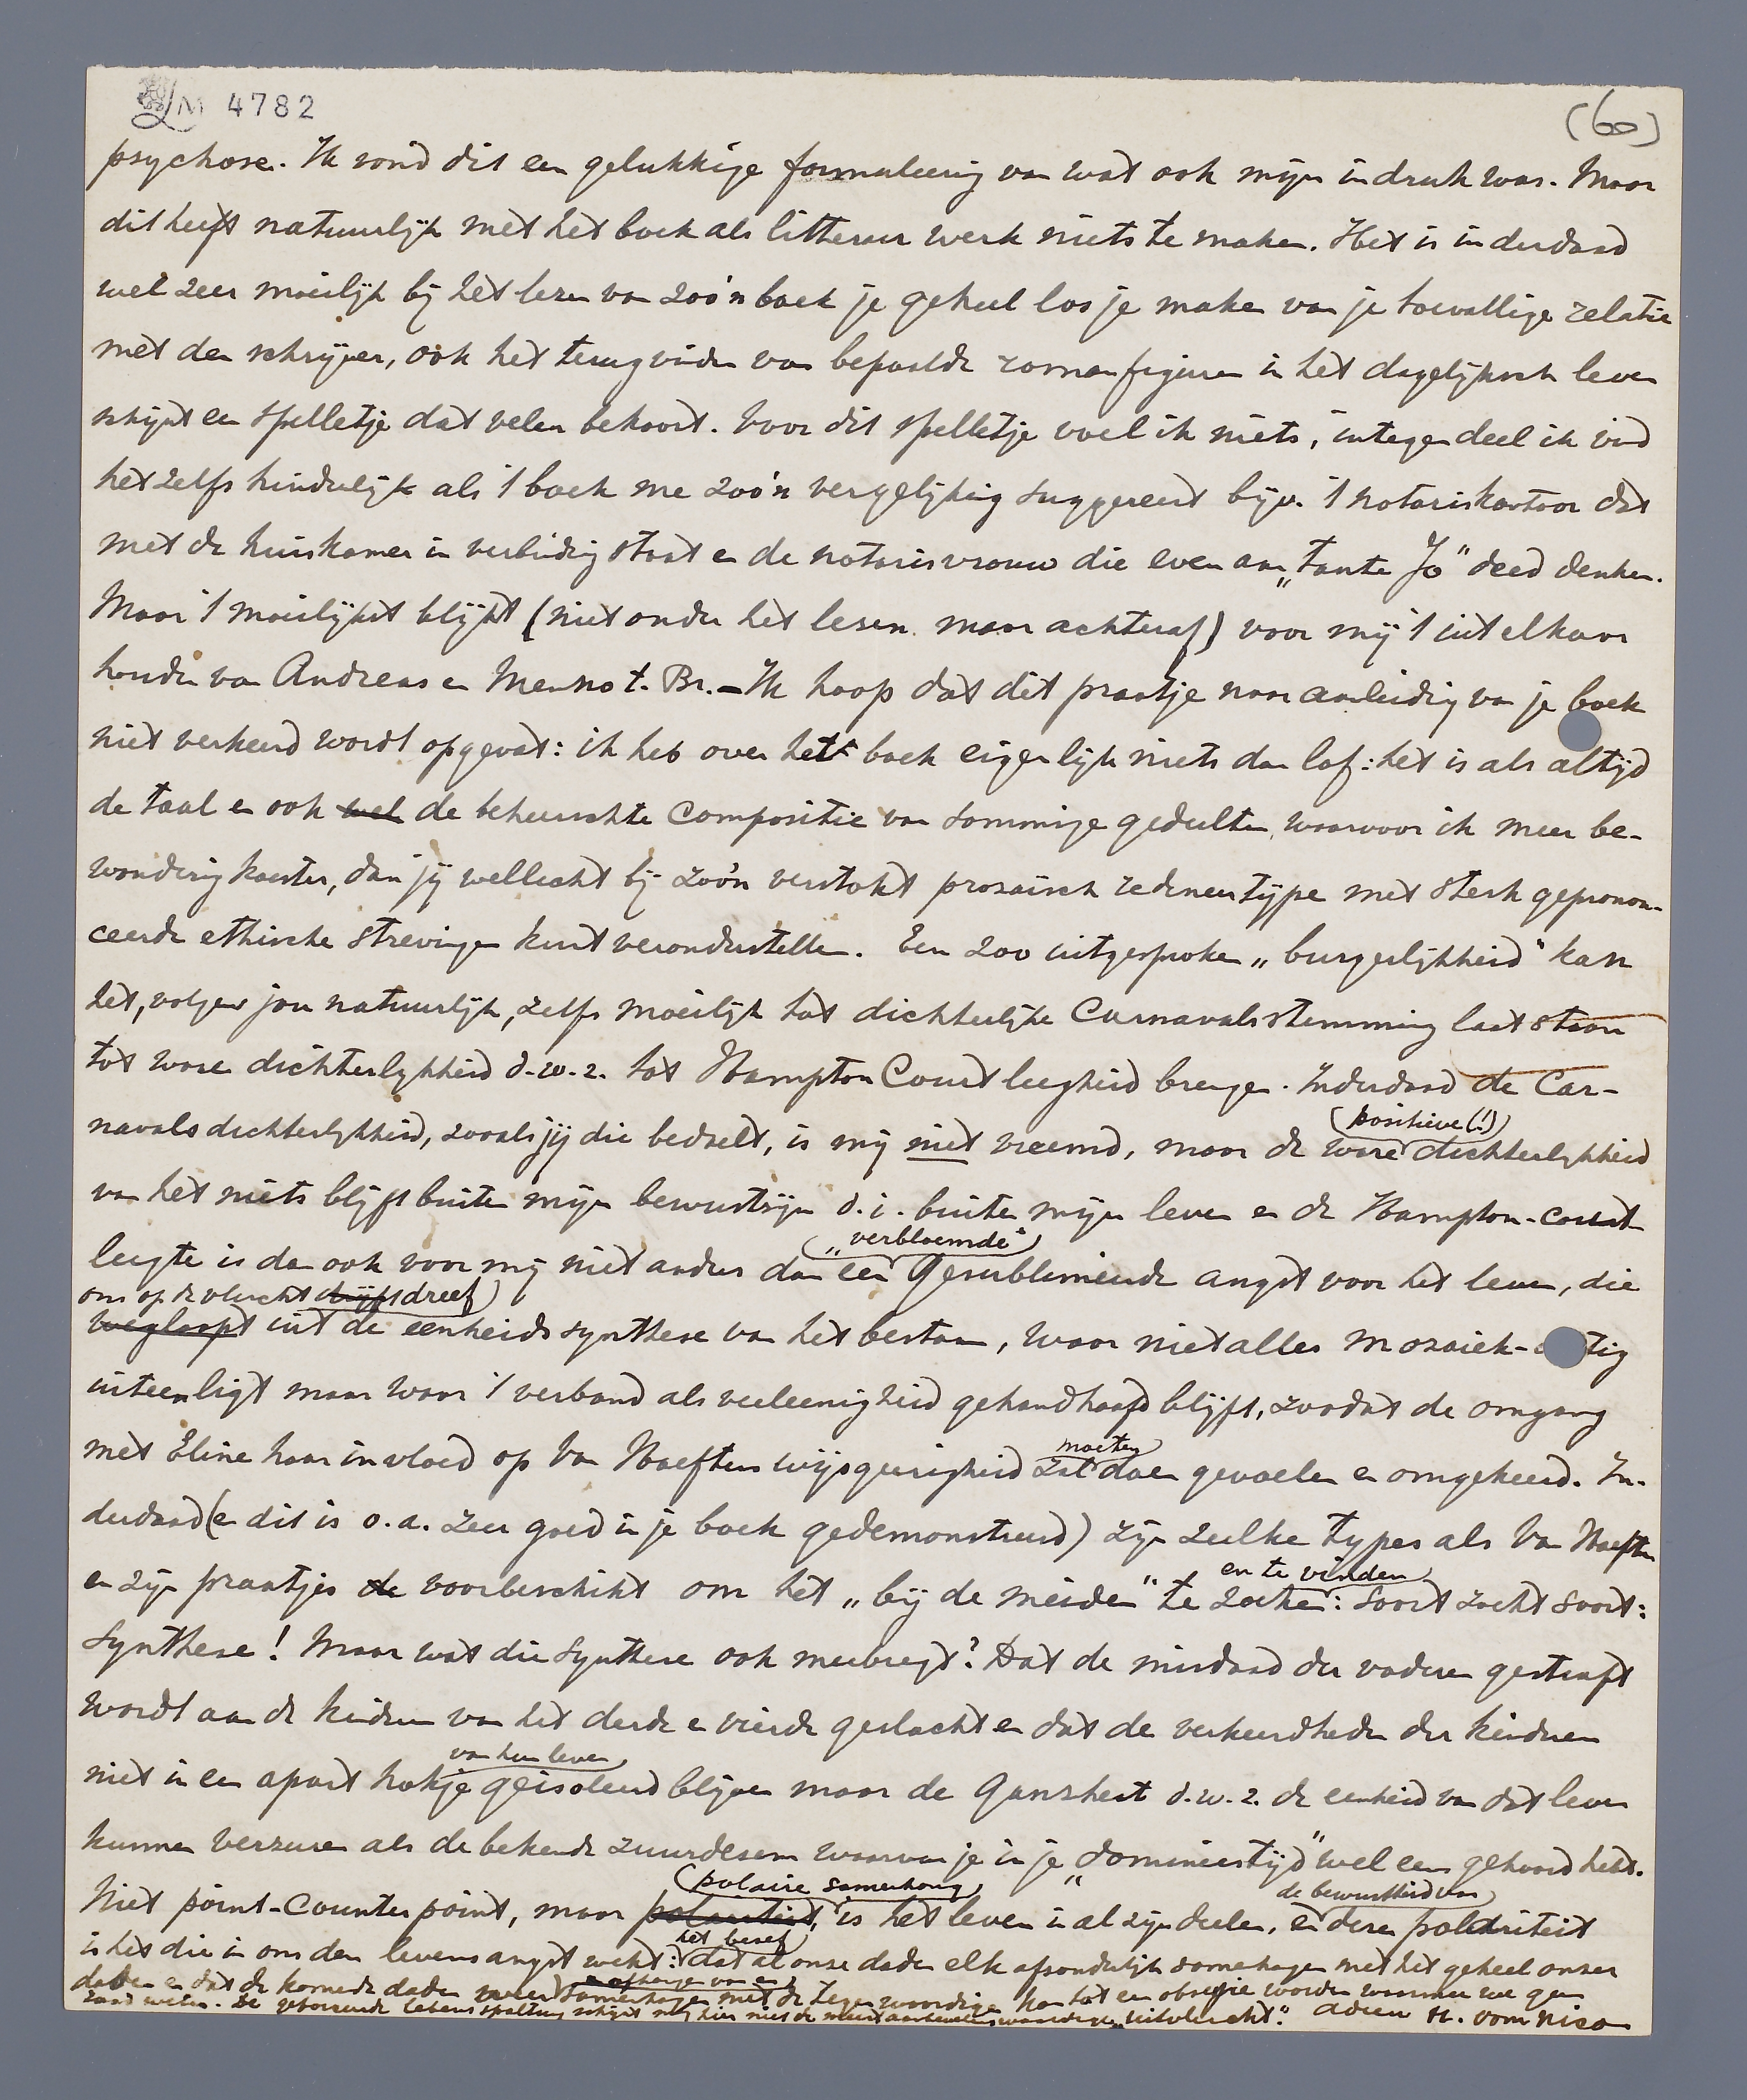 LM 4782
(60)
psychose. Ik vond dit een gelukkige formuleering van wat ook mijn indruk was. Maar
dit heeft natuurlijk met het boek als litterair werk niets te maken. Het is inderdaad
wel zeer moeilijk bij het lezen van zoo'n boek je geheel los je maken van je toevallige relatie
met den schrijver, ook het terugvinden van bepaalde romanfiguren in het dagelijksch leven
schijnt een spelletje dat velen bekoort. Voor dit spelletje voel ik niets, integendeel ik vind
het zelfs hinderlijk als 't boek me zoo'n vergelijking suggereert bijv. 't notariskantoor dat
met de huiskamer in verbinding staat en de notarisvrouw die even aan „tante Jo" deed denken.
Maar 't moeilijkst blijkt (niet onder het lezen maar achteraf) voor mij 't uit elkaar
houden van Andreas en Menno t. Br. – Ik hoop dat dit praatje naar aanleiding van je boek
niet verkeerd wordt opgevat: ik heb over het boek eigenlijk niets dan lof: het is als altijd
de taal en ook wel de beheerschte compositie van sommige gedeelten, waarvoor ik meer be-
wondering koester, dan jij wellicht bij zoo'n verstokt prozaisch redeneertype met sterk geprononn-
ceerde ethische strevingen kunt veronderstellen. Een zoo uitgesproken „burgerlijkheid" kan
het, volgens jou natuurlijk, zelfs moeilijk tot dichterlijke Carnavalsstemming laat staan
tot ware dichterlijkheid d.w.z. tot Hampton Court leegheid brengen. Inderdaad de Car-
navalsdichterlijkheid, zooals jij die bedoelt, is mij niet vreemd, maar de ware dichterlijkheid
(positieve (!))
van het niets blijft buiten mijn bewustzijn d.i. buiten mijn leven en de Hampton-Court
leegte is dan ook voor mij niet anders dan een gesublimeerde angst voor het leven, die
„verbloemde"
ons op de vlucht drijft dreef
wegloopt uit de eenheidssynthese van het bestaan, waar niet alles mozaiek- tig
uiteenligt maar waar 't verband als veeleenigheid gehandhaafd blijft, zoodat de omgang
met Eline haar invloed op Van Haeftens wijsgeerigheid zal doen gevoelen en omgekeerd. In-
moeten
derdaad (en dit is o.a. zeer goed in je boek gedemonstreerd) zijn zulke types als Van Haeften
en zijn praatjes de voorbeschikt om het „bij de meiden" te zoeken: soort zoekt soort:
en te vinden
synthese! Maar wat die synthese ook meebrengt? Dat de misdaad der vaderen gestraft
wordt aan de kinderen van het derde en vierde geslacht en dat de verkeerdheden der kinderen
niet in een apart hokje geisoleerd blijven maar de ganzheit d.w.z. de eenheid van dat leven
van hun leven
kunnen verzuren als de bekende zuurdesem waarvan je in je „domineestijd" wel eens gehoord hebt.
Niet point-counterpoint, maar polariteit, is het leven in al zijn deelen, en deze polariteit
polaire samenhang
de bewustheid van
is het die in ons den levensangst wekt: dat al onze daden elk afzonderlijk samenhangen met het geheel onzer
het besef
daden en dat de komende daden weer samenhangen met de tegenwoordige kan tot een obsessie worden waarmee we geen
en afhangen van en
raad weten. De gevoerende Lebensspaltung schijnt mij hier niet de meest aanbevelenswaardige „uitvlucht". adieu H. vom Nico